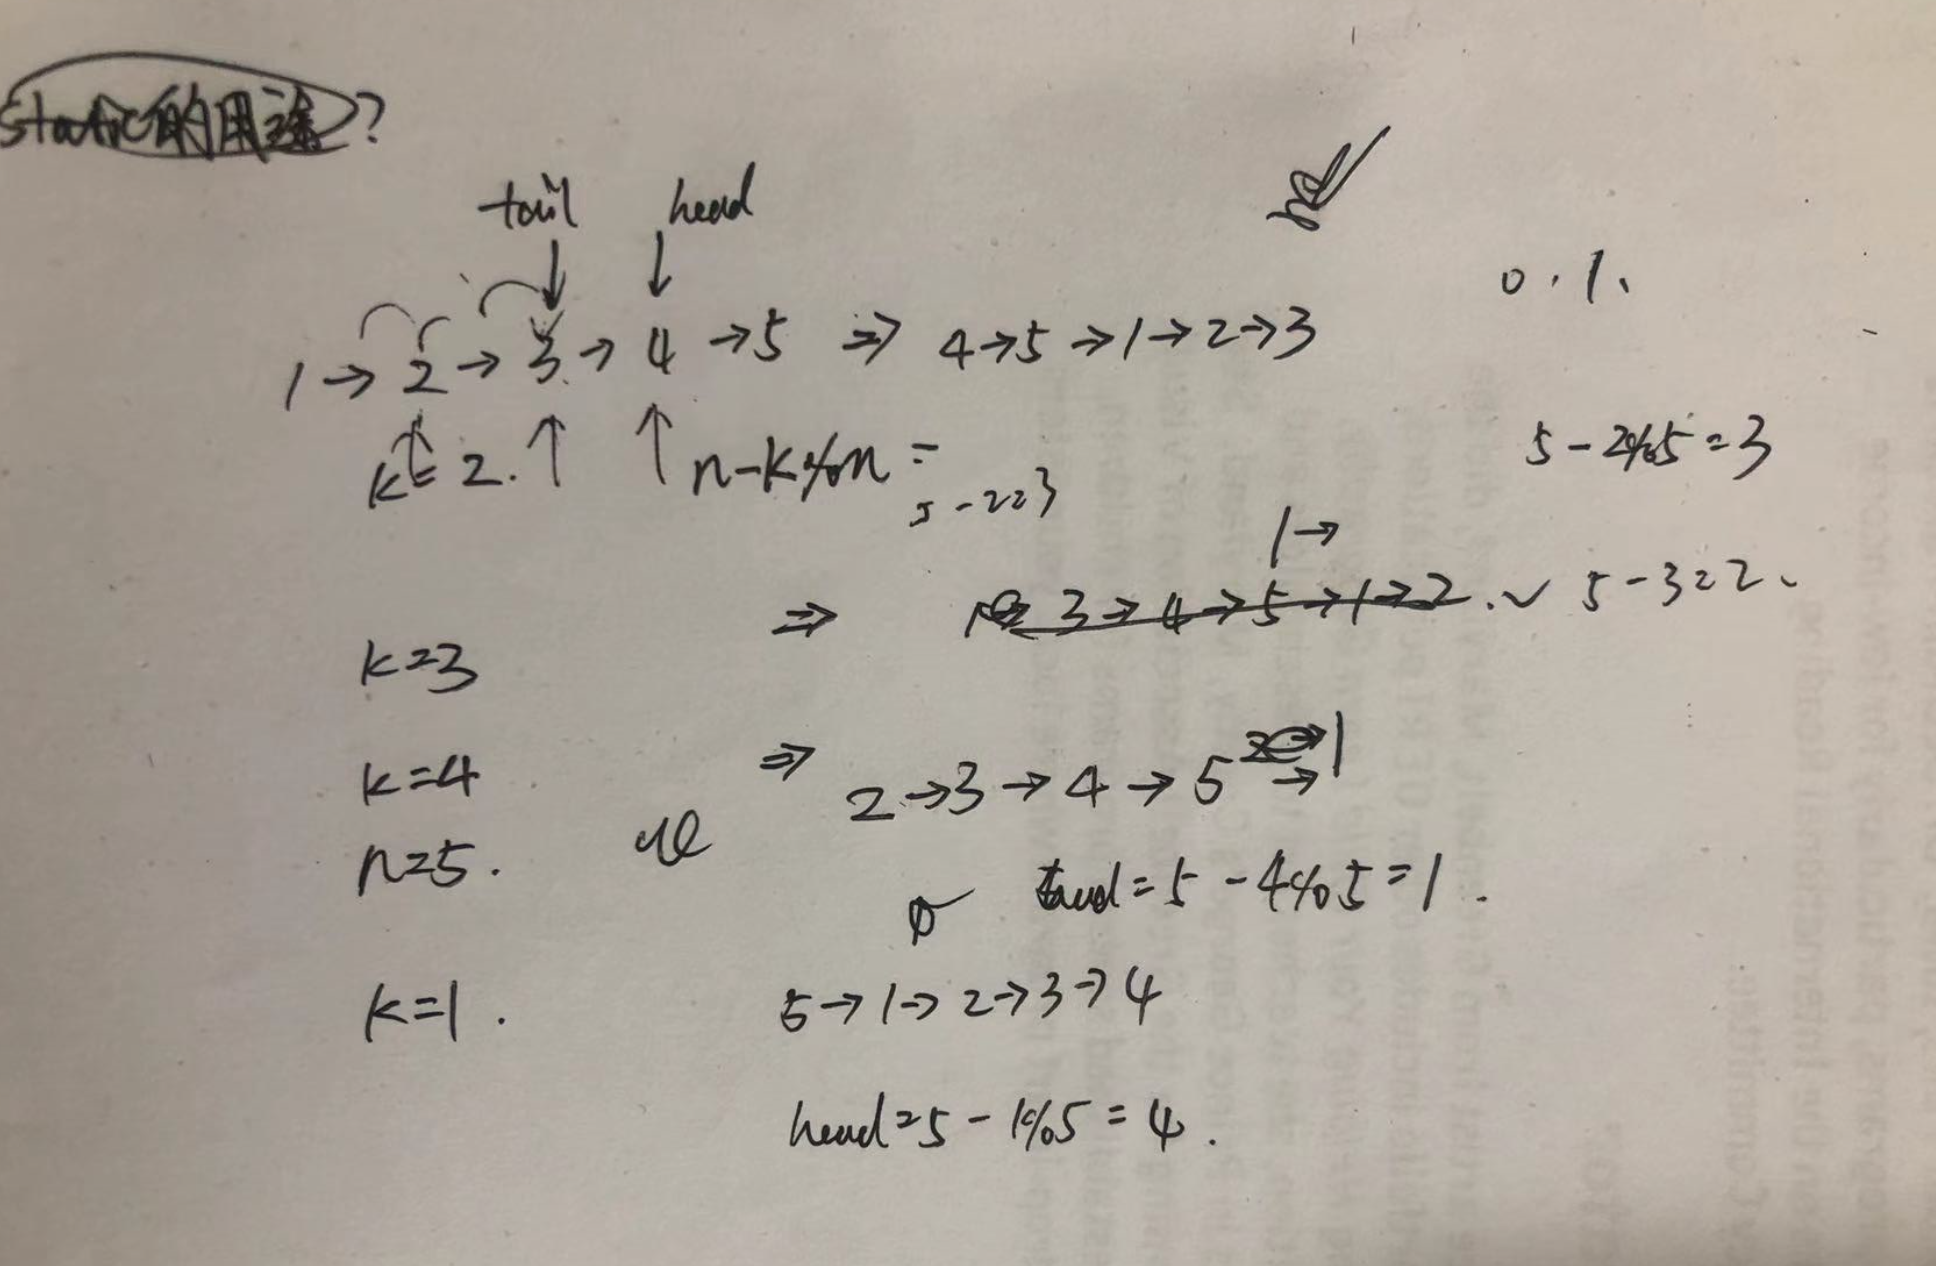 static的用途?
tail head
0、1、
1→2→3→4→5 ⇒ 4→5→1→2→3
k=2. n-k%n=
5-2=3
5-2%5=3
1→
⇒ 3→4→5→1→2. ✓ 5-3=2、
k=3
k=4 ⇒ 2→3→4→5→1
n=5.
head=5-4%5=1.
k=1. 5→1→2→3→4
head=5-1%5=4.